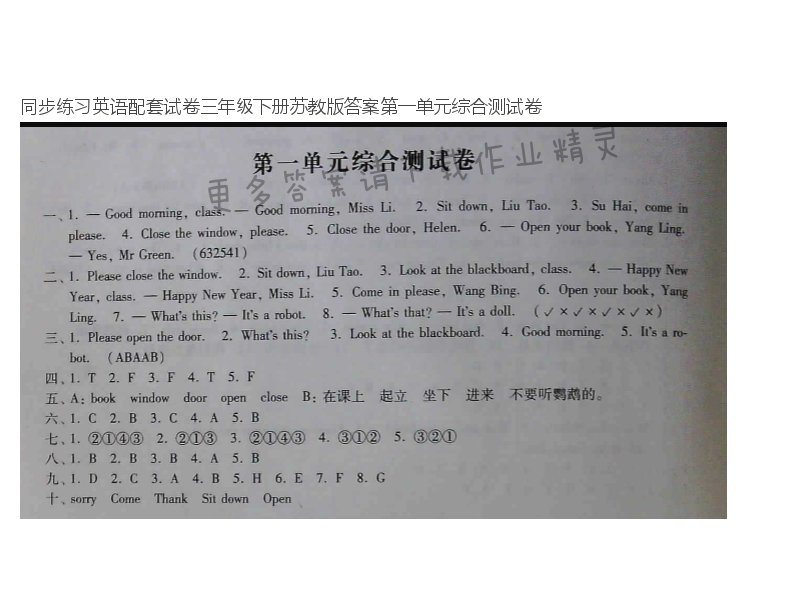 同步练习英语配套试卷三年级下册苏教版答案第一单元综合测试卷
第一单元综合测试卷
更多答案请下载作业精灵
一、1. — Good morning, class. — Good morning, Miss Li. 2. Sit down, Liu Tao. 3. Su Hai, come in
please. 4. Close the window, please. 5. Close the door, Helen. 6. — Open your book, Yang Ling.
— Yes, Mr Green. (632541)
二、1. Please close the window. 2. Sit down, Liu Tao. 3. Look at the blackboard, class. 4. — Happy New
Year, class. — Happy New Year, Miss Li. 5. Come in please, Wang Bing. 6. Open your book, Yang
Ling. 7. — What's this? — It's a robot. 8. — What's that? — It's a doll. (✓×✓×✓×✓×)
三、1. Please open the door. 2. What's this? 3. Look at the blackboard. 4. Good morning. 5. It's a ro-
bot. (ABAAB)
四、1. T 2. F 3. F 4. T 5. F
五、A: book window door open close B: 在课上 起立 坐下 进来 不要听鹦鹉的。
六、1. C 2. B 3. C 4. A 5. B
七、1. ②①④③ 2. ②①③ 3. ②①④③ 4. ③①② 5. ③②①
八、1. B 2. B 3. B 4. A 5. B
九、1. D 2. C 3. A 4. B 5. H 6. E 7. F 8. G
十、sorry Come Thank Sit down Open